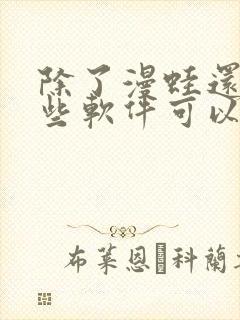 除了漫蛙還
些軟件可以
布萊恩科蘭